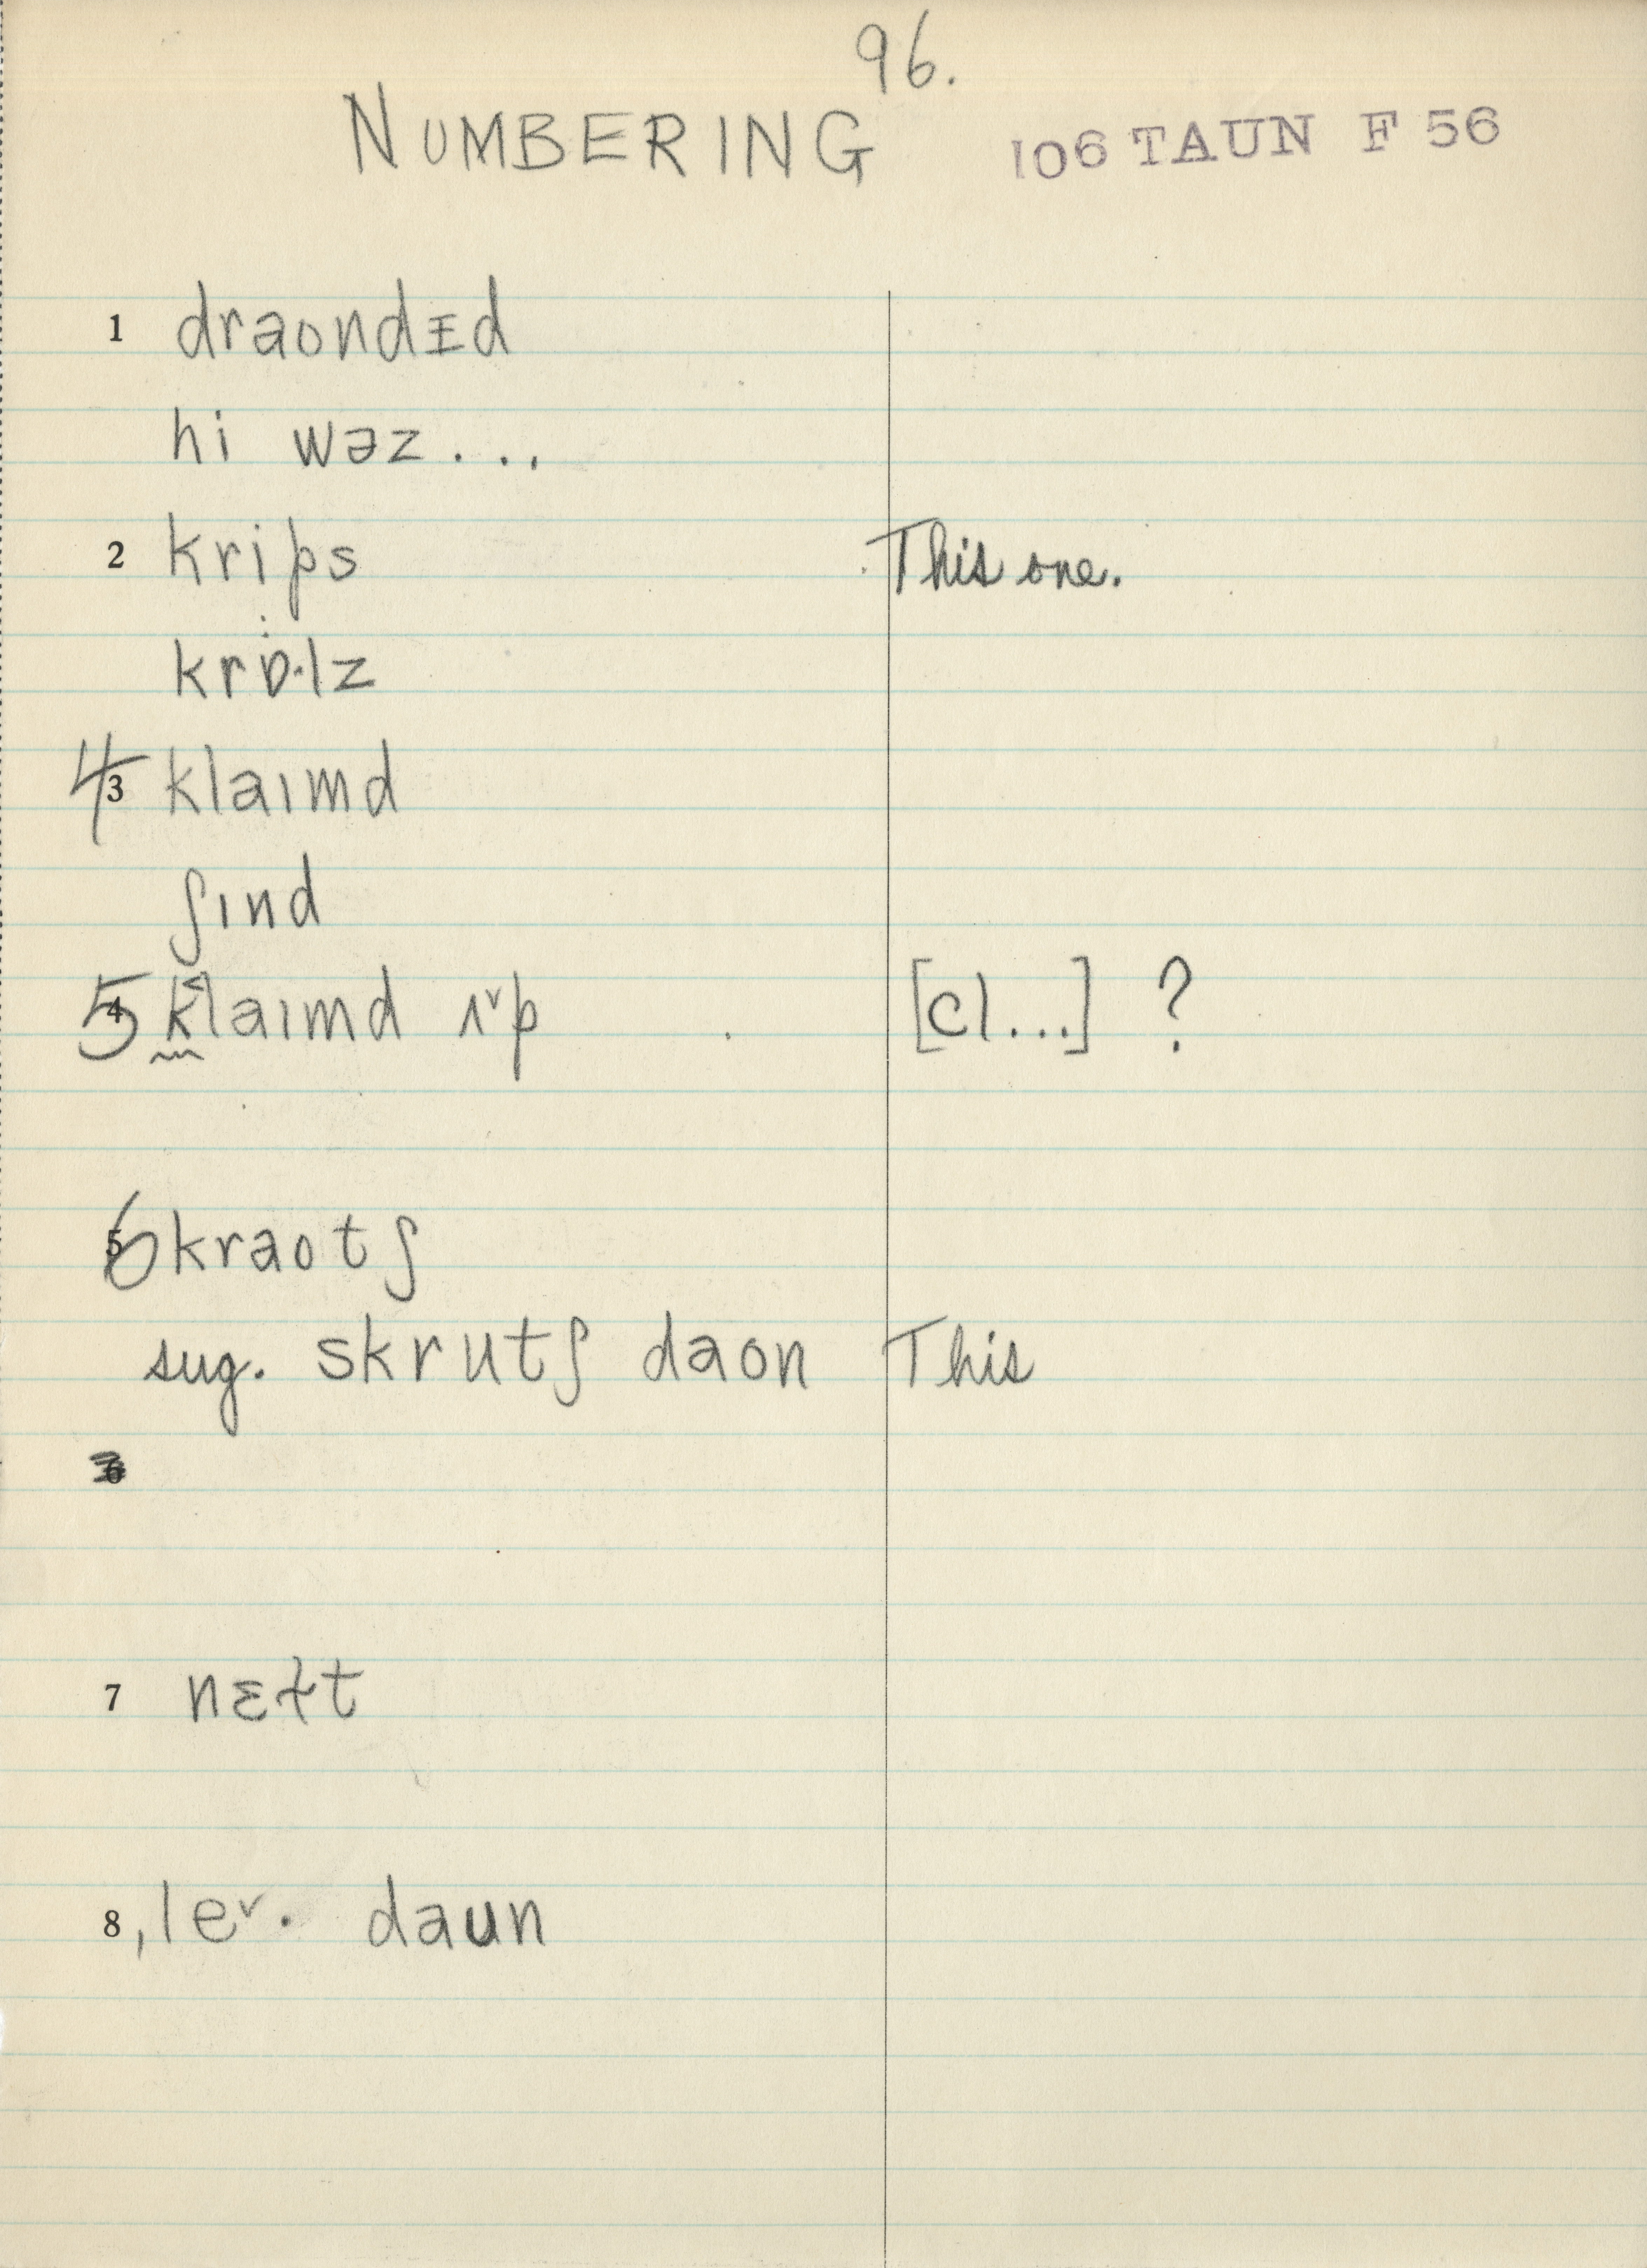 96.
NUMBERING
106 TAUN F 56
1 draondɪd
hi wəz...
2 krips This one.
krɒ·lz
4 3 klaɪmd
ʃɪnd
5 4 k˂laɪmd ʌ˅p [cl...] ?
6 5 kraotʃ
sug. skrutʃ daon This
6
7 nɛɫt
8, le˅· daun